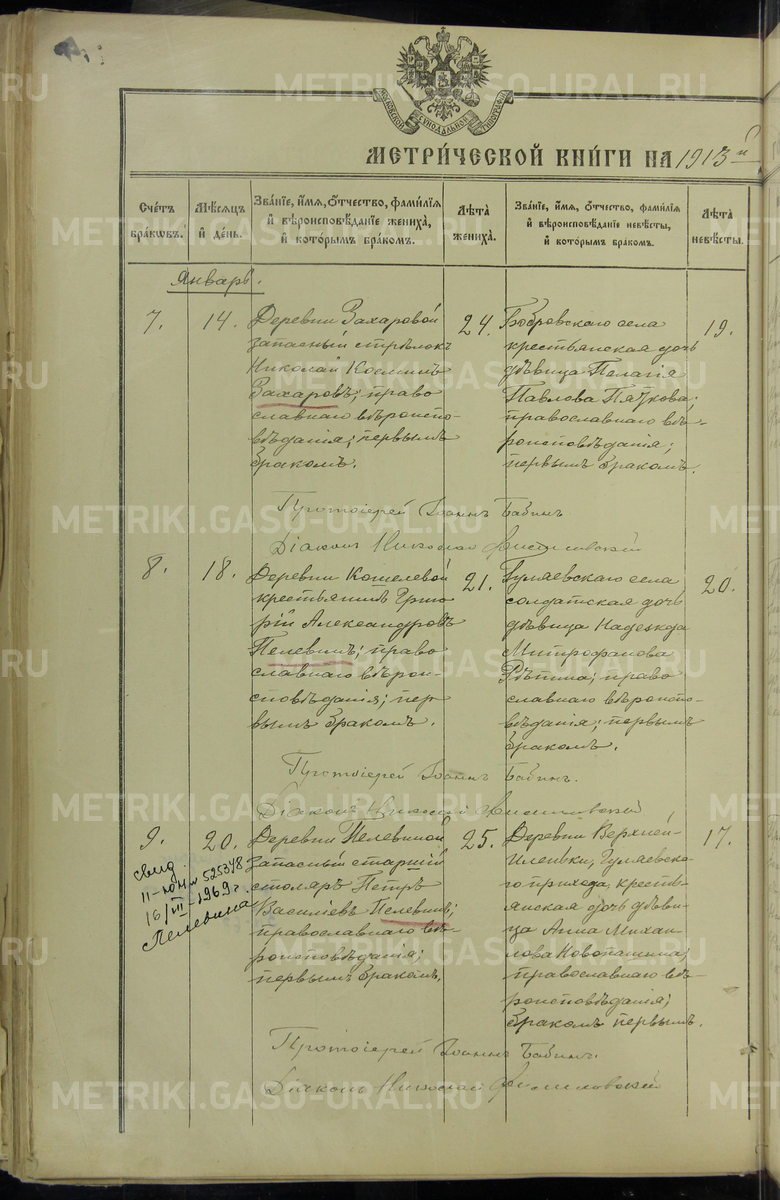 МОСКОВСКОЙ СѴНОДАЛЬНОЙ ТИПОГРАФІИ
МЕТРИ́ЧЕСКОЙ КНИ́ГИ НА 1913 й
Сче́тъ бра́кѡвъ.
Мѣ́сяцъ и҆ де́нь.
Зва́нїе, и҆́мя, ѻ҆́тчество, фами́лїя и҆ вѣроисповѣ́данїе жениха̀, и҆ кото́рымъ бра́комъ.
Лѣ́та жениха̀.
Зва́нїе, и҆́мя, ѻ҆́тчество, фами́лїя и҆ вѣроисповѣ́данїе невѣ́сты, и҆ кото́рымъ бра́комъ.
Лѣ́та невѣ́сты.
Январь.
7.
14.
Деревни Захаровой
запасный стрѣлокъ
Николай Космин
Захаровъ; право
славнаго вѣроиспо-
вѣданія; первымъ
бракомъ.
24.
Бобровскаго села
крестьянская дочь
дѣвица Пелагія
Павлова Пяткова;
православнаго вѣ-
роисповѣданія;
первымъ бракомъ.
19.
Протоіерей Іоаннъ Бабинъ
Діаконъ Николай
8.
18.
Деревни Кошелевой
крестьянинъ Григо
рій Александровъ
Пелевинъ; право
славнаго вѣрои-
сповѣданія; пер
вымъ бракомъ.
21.
Гуляевскаго села
солдатская дочь
дѣвица Надежда
Митрофанова
Рѣпина; право
славнаго вѣроиспо-
вѣданія; первымъ
бракомъ.
20.
Протоіерей Іоаннъ Бабинъ.
Діаконъ Николай
9.
20.
свид.
II-ЮН № 525378
16/VII-1969 г.
Пелевина
Деревни Пелевиной
запасный старшій
столяръ Петръ
Васильевъ Пелевинъ;
православнаго вѣ-
роисповѣданія;
первымъ бракомъ.
25.
Деревни Верхней
Иленки, Гуляевска-
го прихода, кресть-
янская дочь дѣви-
ца Анна Михаи-
лова Новопашина;
православнаго вѣ-
роисповѣданія;
бракомъ первымъ.
17.
Протоіерей Іоаннъ Бабинъ.
Діаконъ Николай
METRIKI.GASO-URAL.RU